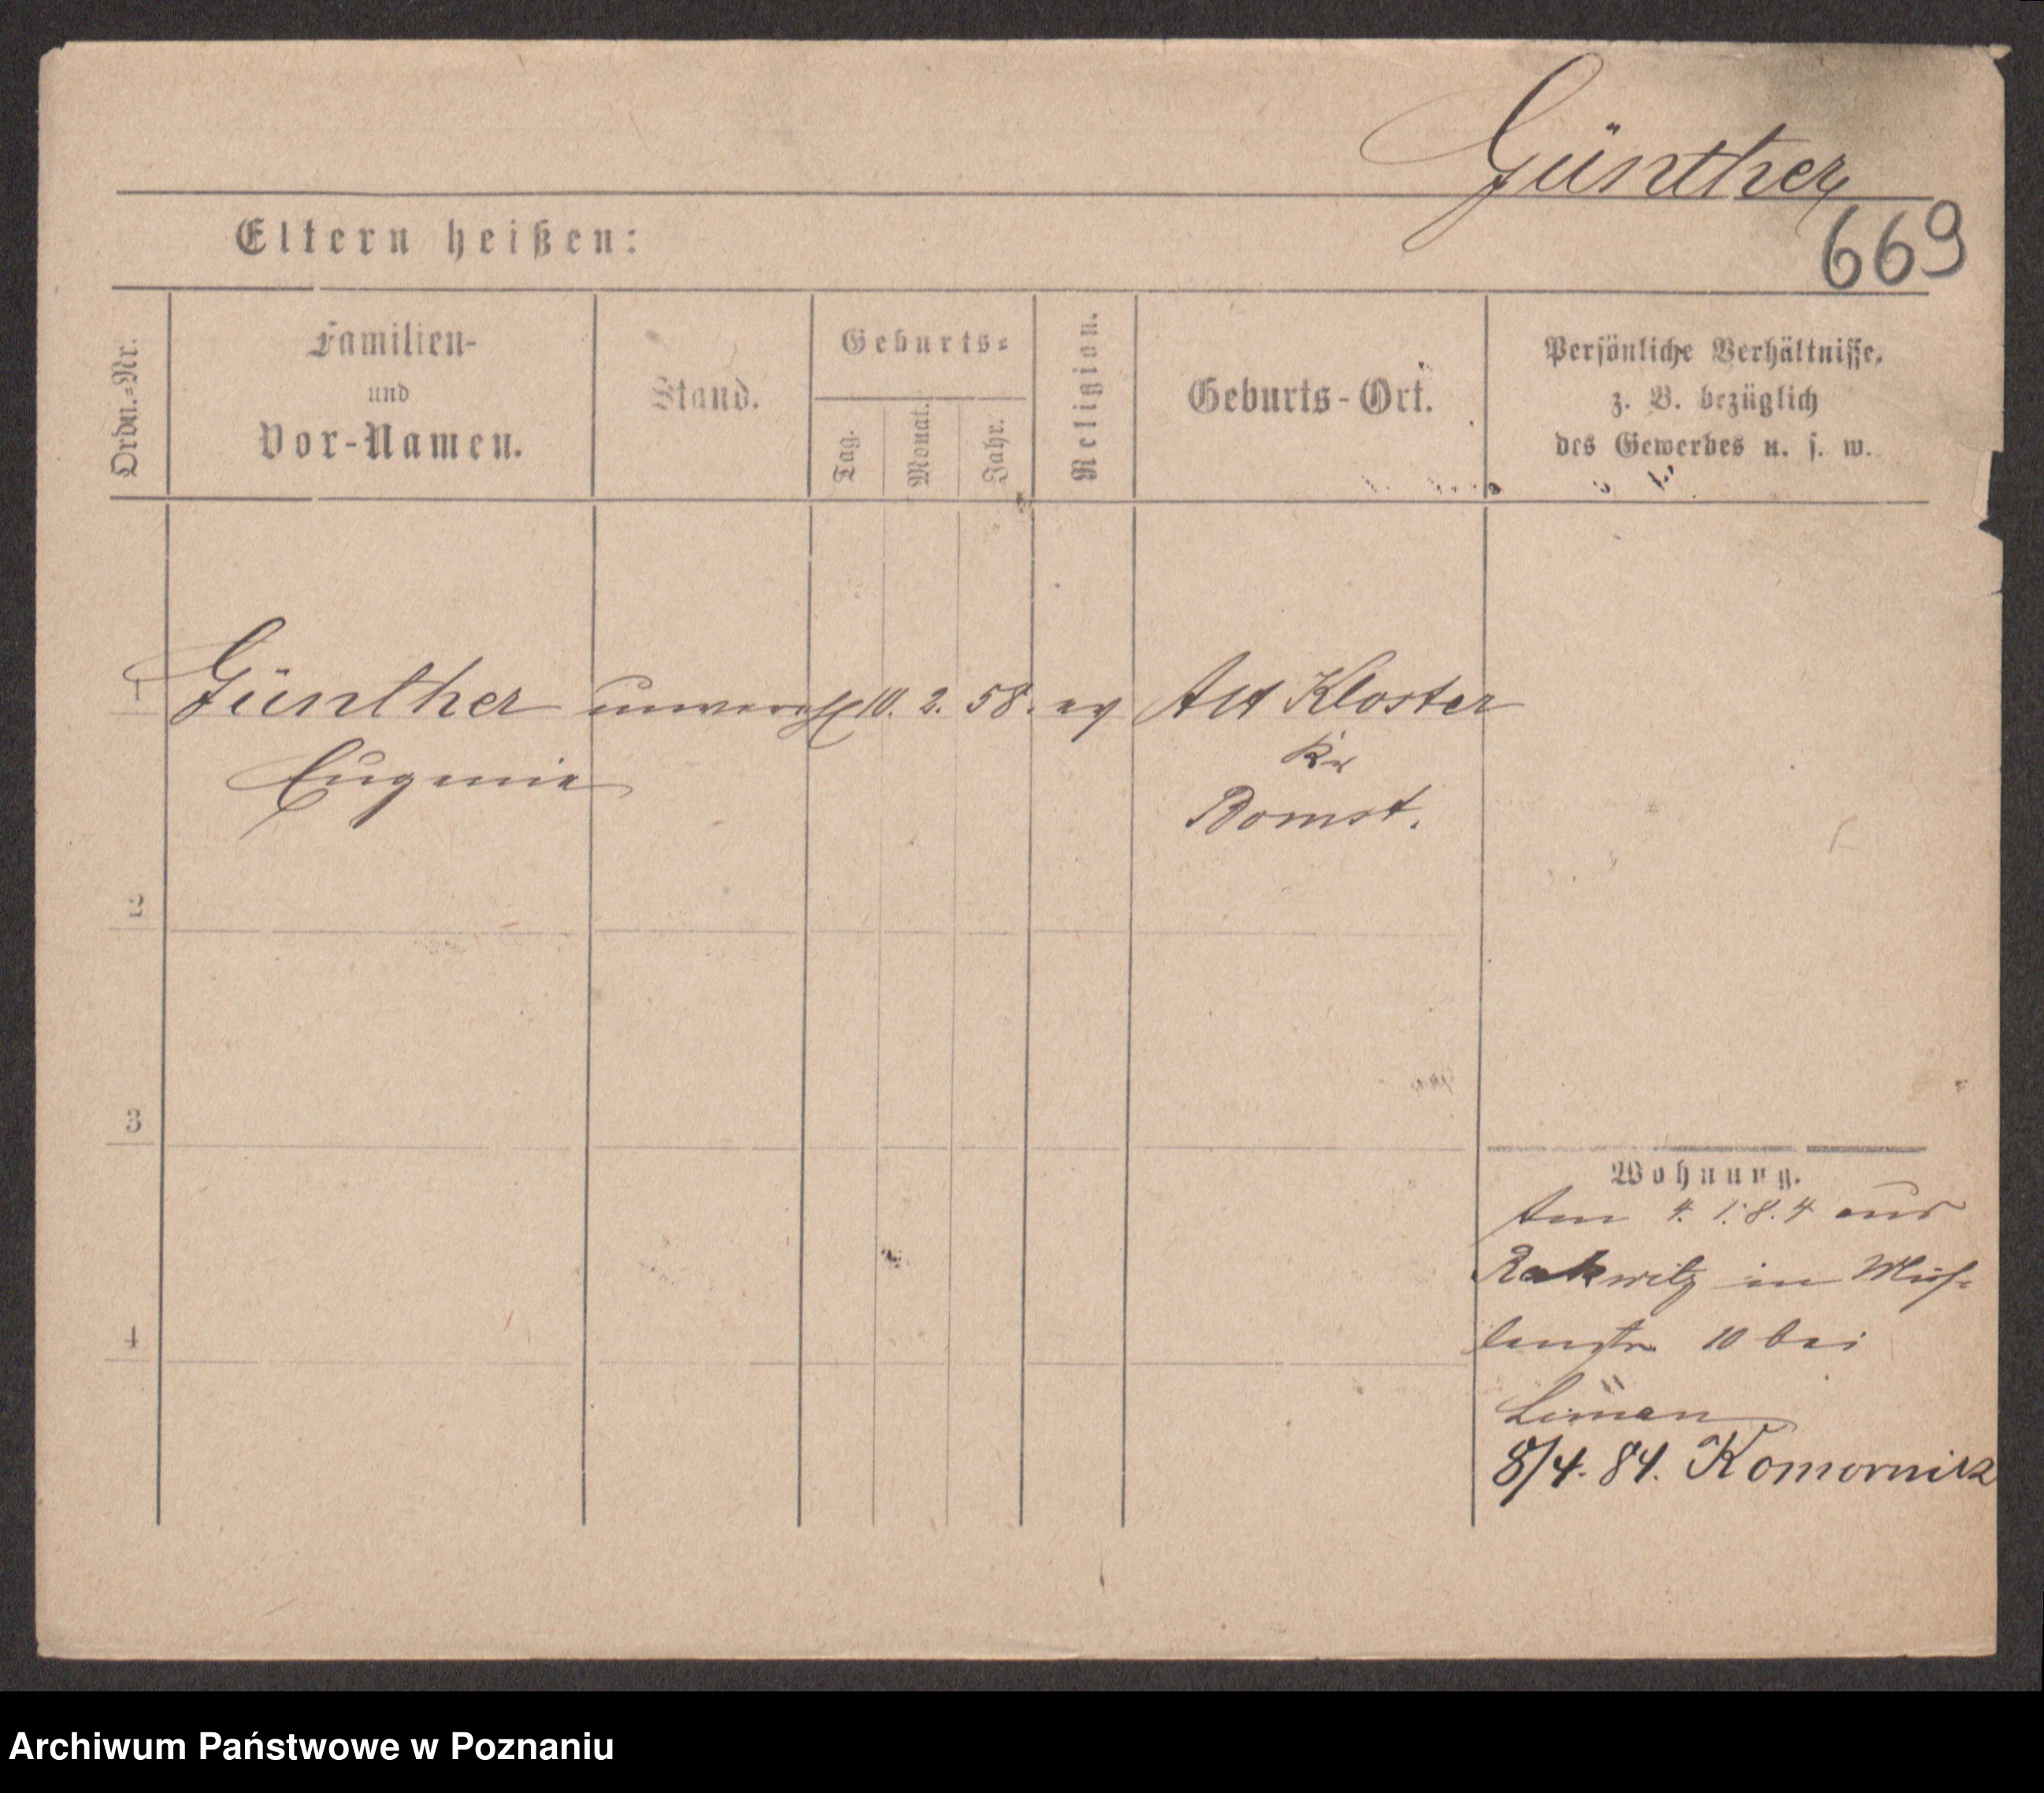 Günther
669
Eltern heißen:
Ordn.=Nr.
Familien-
und
Vor-Namen.
Stand.
Geburts=
Tag.
Monat.
Jahr.
Religion.
Geburts-Ort.
Persönliche Verhältnisse,
z. B. bezüglich
des Gewerbes u. s. w.
1 Günther unverehl 10. 2. 58. ev Alt Kloster
Eugenie
Kr
Bomst.
2
3
4
Wohnung.
Am 4. 1. 8. 4 aus
Rakwitz in Müh-
lenstr 10 bei
8/4. 84. Komornik
Archiwum Państwowe w Poznaniu